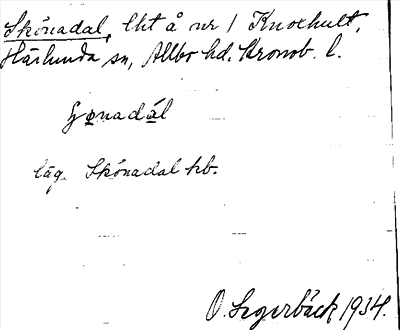 Skönadal, lht å nr 1 Knoxhult,
Härlunda sn, Allbo hd. Kronob. l.
läg. Skönadal hb.
O. Segerbäck 1934.